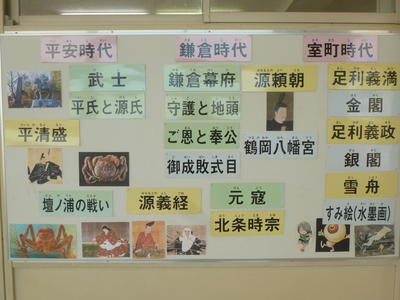 平安時代
武士
平氏と源氏
平清盛
壇ノ浦の戦い
源義経
鎌倉時代
鎌倉幕府
守護と地頭
ご恩と奉公
御成敗式目
源頼朝
鶴岡八幡宮
元寇
北条時宗
室町時代
足利義満
金閣
足利義政
銀閣
雪舟
すみ絵(水墨画)